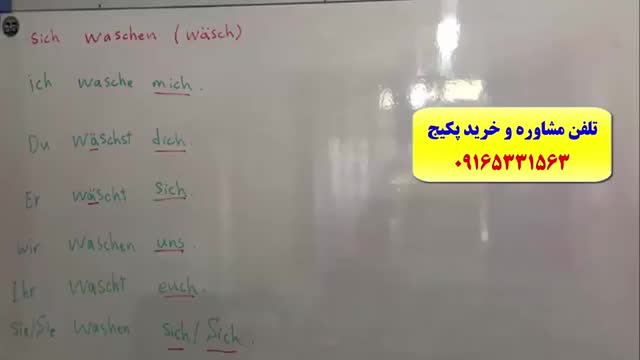 sich waschen (wäsch)
ich wasche mich.
Du wäschst dich.
Er wäscht sich.
wir waschen uns.
Ihr wascht euch.
Sie/Sie washen sich/Sich.
تلفن مشاوره و خرید پکیج
۰۹۱۶۵۳۳۱۵۶۳